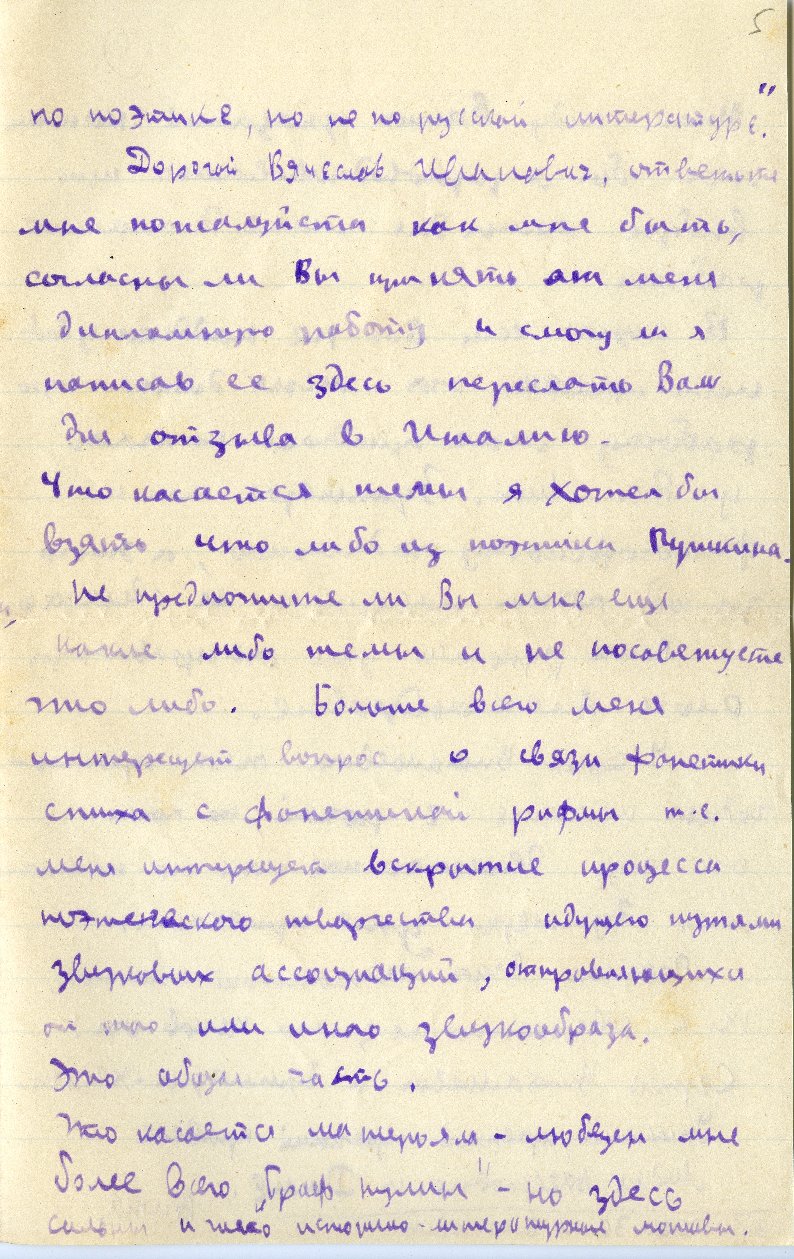 5
по поэтике, но не по русской литературе."
Дорогой Вячеслав Иванович, ответьте
мне пожалуйста как мне быть,
согласны ли Вы принять от меня
дипломную работу и смогу ли я
написав ее здесь переслать Вам
для отзыва в Италию.
Что касается темы я хотел бы
взять что либо из поэтики Пушкина.
Не предложите ли Вы мне еще
какие либо темы и не посоветуете
что либо. Больше всего меня
интересует вопрос о связи фонетики
стиха с фонетикой рифмы т.е.
меня интересует вскрытие процесса
поэтического творчества идущего путями
звуковых ассоциаций, отправляющихся
от того или иного звукообраза.
Это общая часть.
Что касается матерьяла - любезен мне
более всего "Граф Нулин" - но здесь
сильны и чисто историко-литературные мотивы.